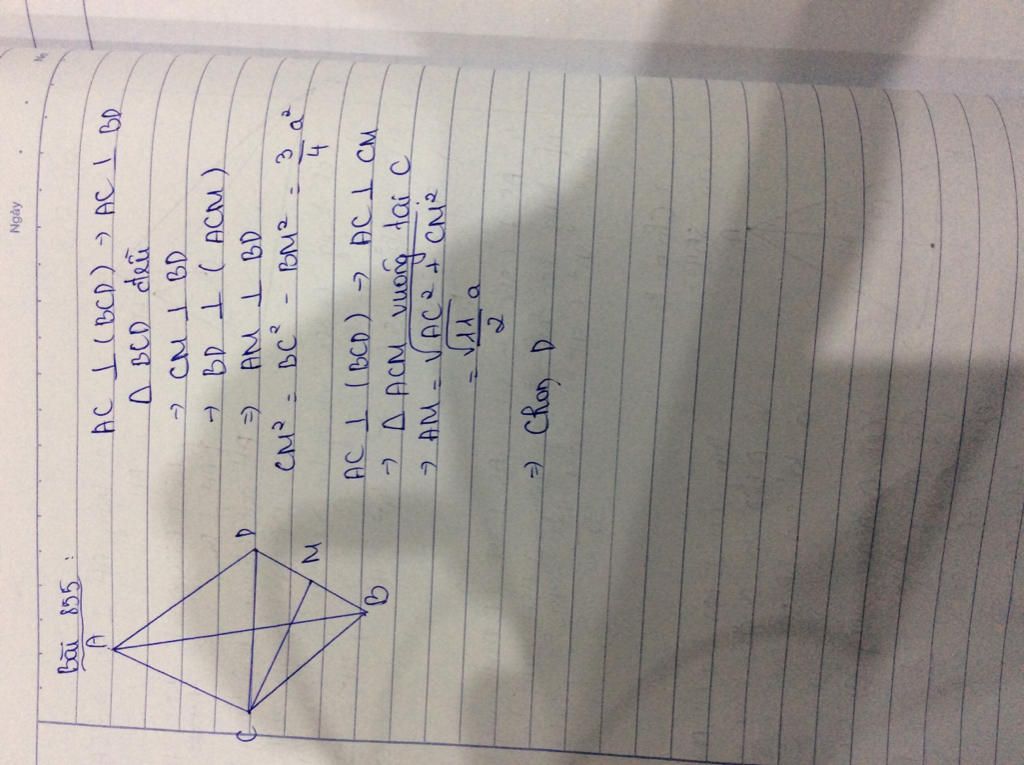 Ngày
Bài 855 :
A
C
D
M
B
AC ⊥ (BCD) → AC ⊥ BD
Δ BCD đều
→ CM ⊥ BD
→ BD ⊥ (ACM)
⇒ AM ⊥ BD
CM² = BC² - BM² = 3/4 a²
AC ⊥ (BCD) → AC ⊥ CM
→ Δ ACM vuông tại C
→ AM = √AC² + CM²
= √11/2 a
⇒ Chọn D